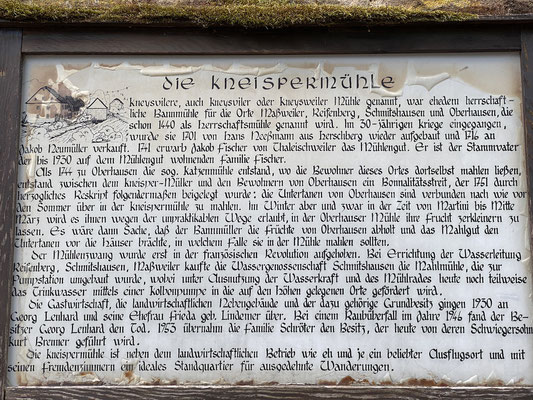 Die Kneispermühle
Kneusvilere, auch Kneusviler oder Kneusweiler Mühle genannt, war ehedem herrschaft-
liche Bannmühle für die Orte Maßweiler, Reifenberg, Schmitshausen und Oberhausen, die
schon 1440 als Herrschaftsmühle genannt wird. Im 30-jährigen Kriege eingegangen,
wurde sie 1701 von Hans Neeßmann aus Herschberg wieder aufgebaut und 1716 an
Jakob Neumüller verkauft. 1741 erwarb Jakob Fischer von Thaleischweiler das Mühlengut. Er ist der Stammvater
der bis 1930 auf dem Mühlengut wohnenden Familie Fischer.
Als 1744 zu Oberhausen die sog. Katzenmühle entstand, wo die Bewohner dieses Ortes dortselbst mahlen ließen,
entstand zwischen dem Kneisper-Müller und den Bewohnern von Oberhausen ein Bonnalitätsstreit, der 1751 durch
herzogliches Reskript folgendermaßen beigelegt wurde: die Untertanen von Oberhausen sind verbunden nach wie vor
den Sommer über in der Kneispermühle zu mahlen. Im Winter aber und zwar in der Zeit von Martini bis Mitte
März wird es ihnen wegen der unpraktikablen Wege erlaubt, in der Oberhauser Mühle ihre Frucht zerkleinern zu
lassen. Es wäre dann Sache, daß der Bannmüller die Früchte von Oberhausen abholt und das Mahlgut den
Untertanen vor die Häuser brächte, in welchem Falle sie in der Mühle mahlen sollten.
Der Mühlenzwang wurde erst in der französischen Revolution aufgehoben. Bei Errichtung der Wasserleitung
Reifenberg, Schmitshausen, Maßweiler kaufte die Wassergenossenschaft Schmitshausen die Mahlmühle, die zur
Pumpstation umgebaut wurde, wobei unter Ausnutzung der Wasserkraft und des Mühlrades heute noch teilweise
das Trinkwasser mittels einer Kolbenpumpe in die auf den Höhen gelegenen Orte gefördert wird.
Die Gastwirtschaft, die landwirtschaftlichen Nebengebäude und der dazu gehörige Grundbesitz gingen 1930 an
Georg Lenhard und seine Ehefrau Frieda geb. Lindemer über. Bei einem Raubüberfall im Jahre 1946 fand der Be-
sitzer Georg Lenhard den Tod. 1953 übernahm die Familie Schröter den Besitz, der heute von deren Schwiegersohn
Kurt Brenner geführt wird.
Die Kneispermühle ist neben dem landwirtschaftlichen Betrieb wie eh und je ein beliebter Ausflugsort und mit
seinen Fremdenzimmern ein ideales Standquartier für ausgedehnte Wanderungen.